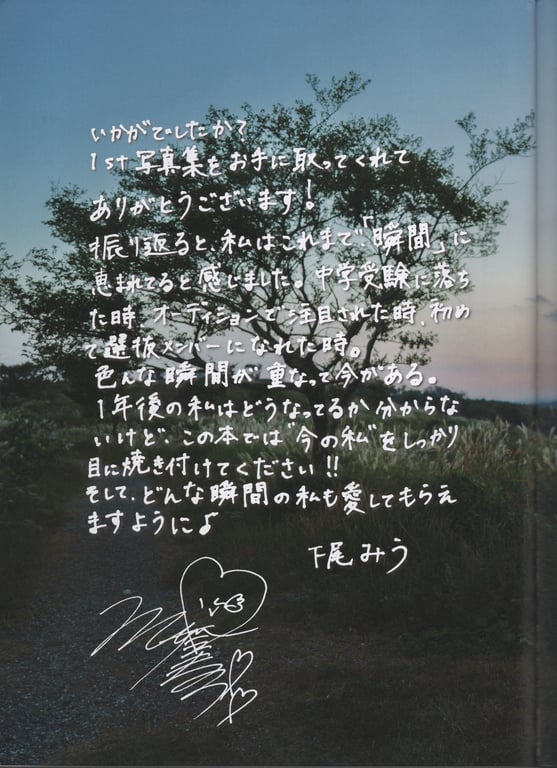 いかがでしたか?
1st写真集をお手に取ってくれて
ありがとうございます!
振り返ると、私はこれまで、「瞬間」に
恵まれてると感じました。中学受験に落ち
た時、オーディションで注目された時、初め
て選抜メンバーになれた時。
色んな瞬間が重なって今がある。
1年後の私はどうなってるか分からな
いけど、この本では"今の私"をしっかり
目に焼き付けてください!!
そして、どんな瞬間の私も愛してもらえ
ますように♪
下尾みう